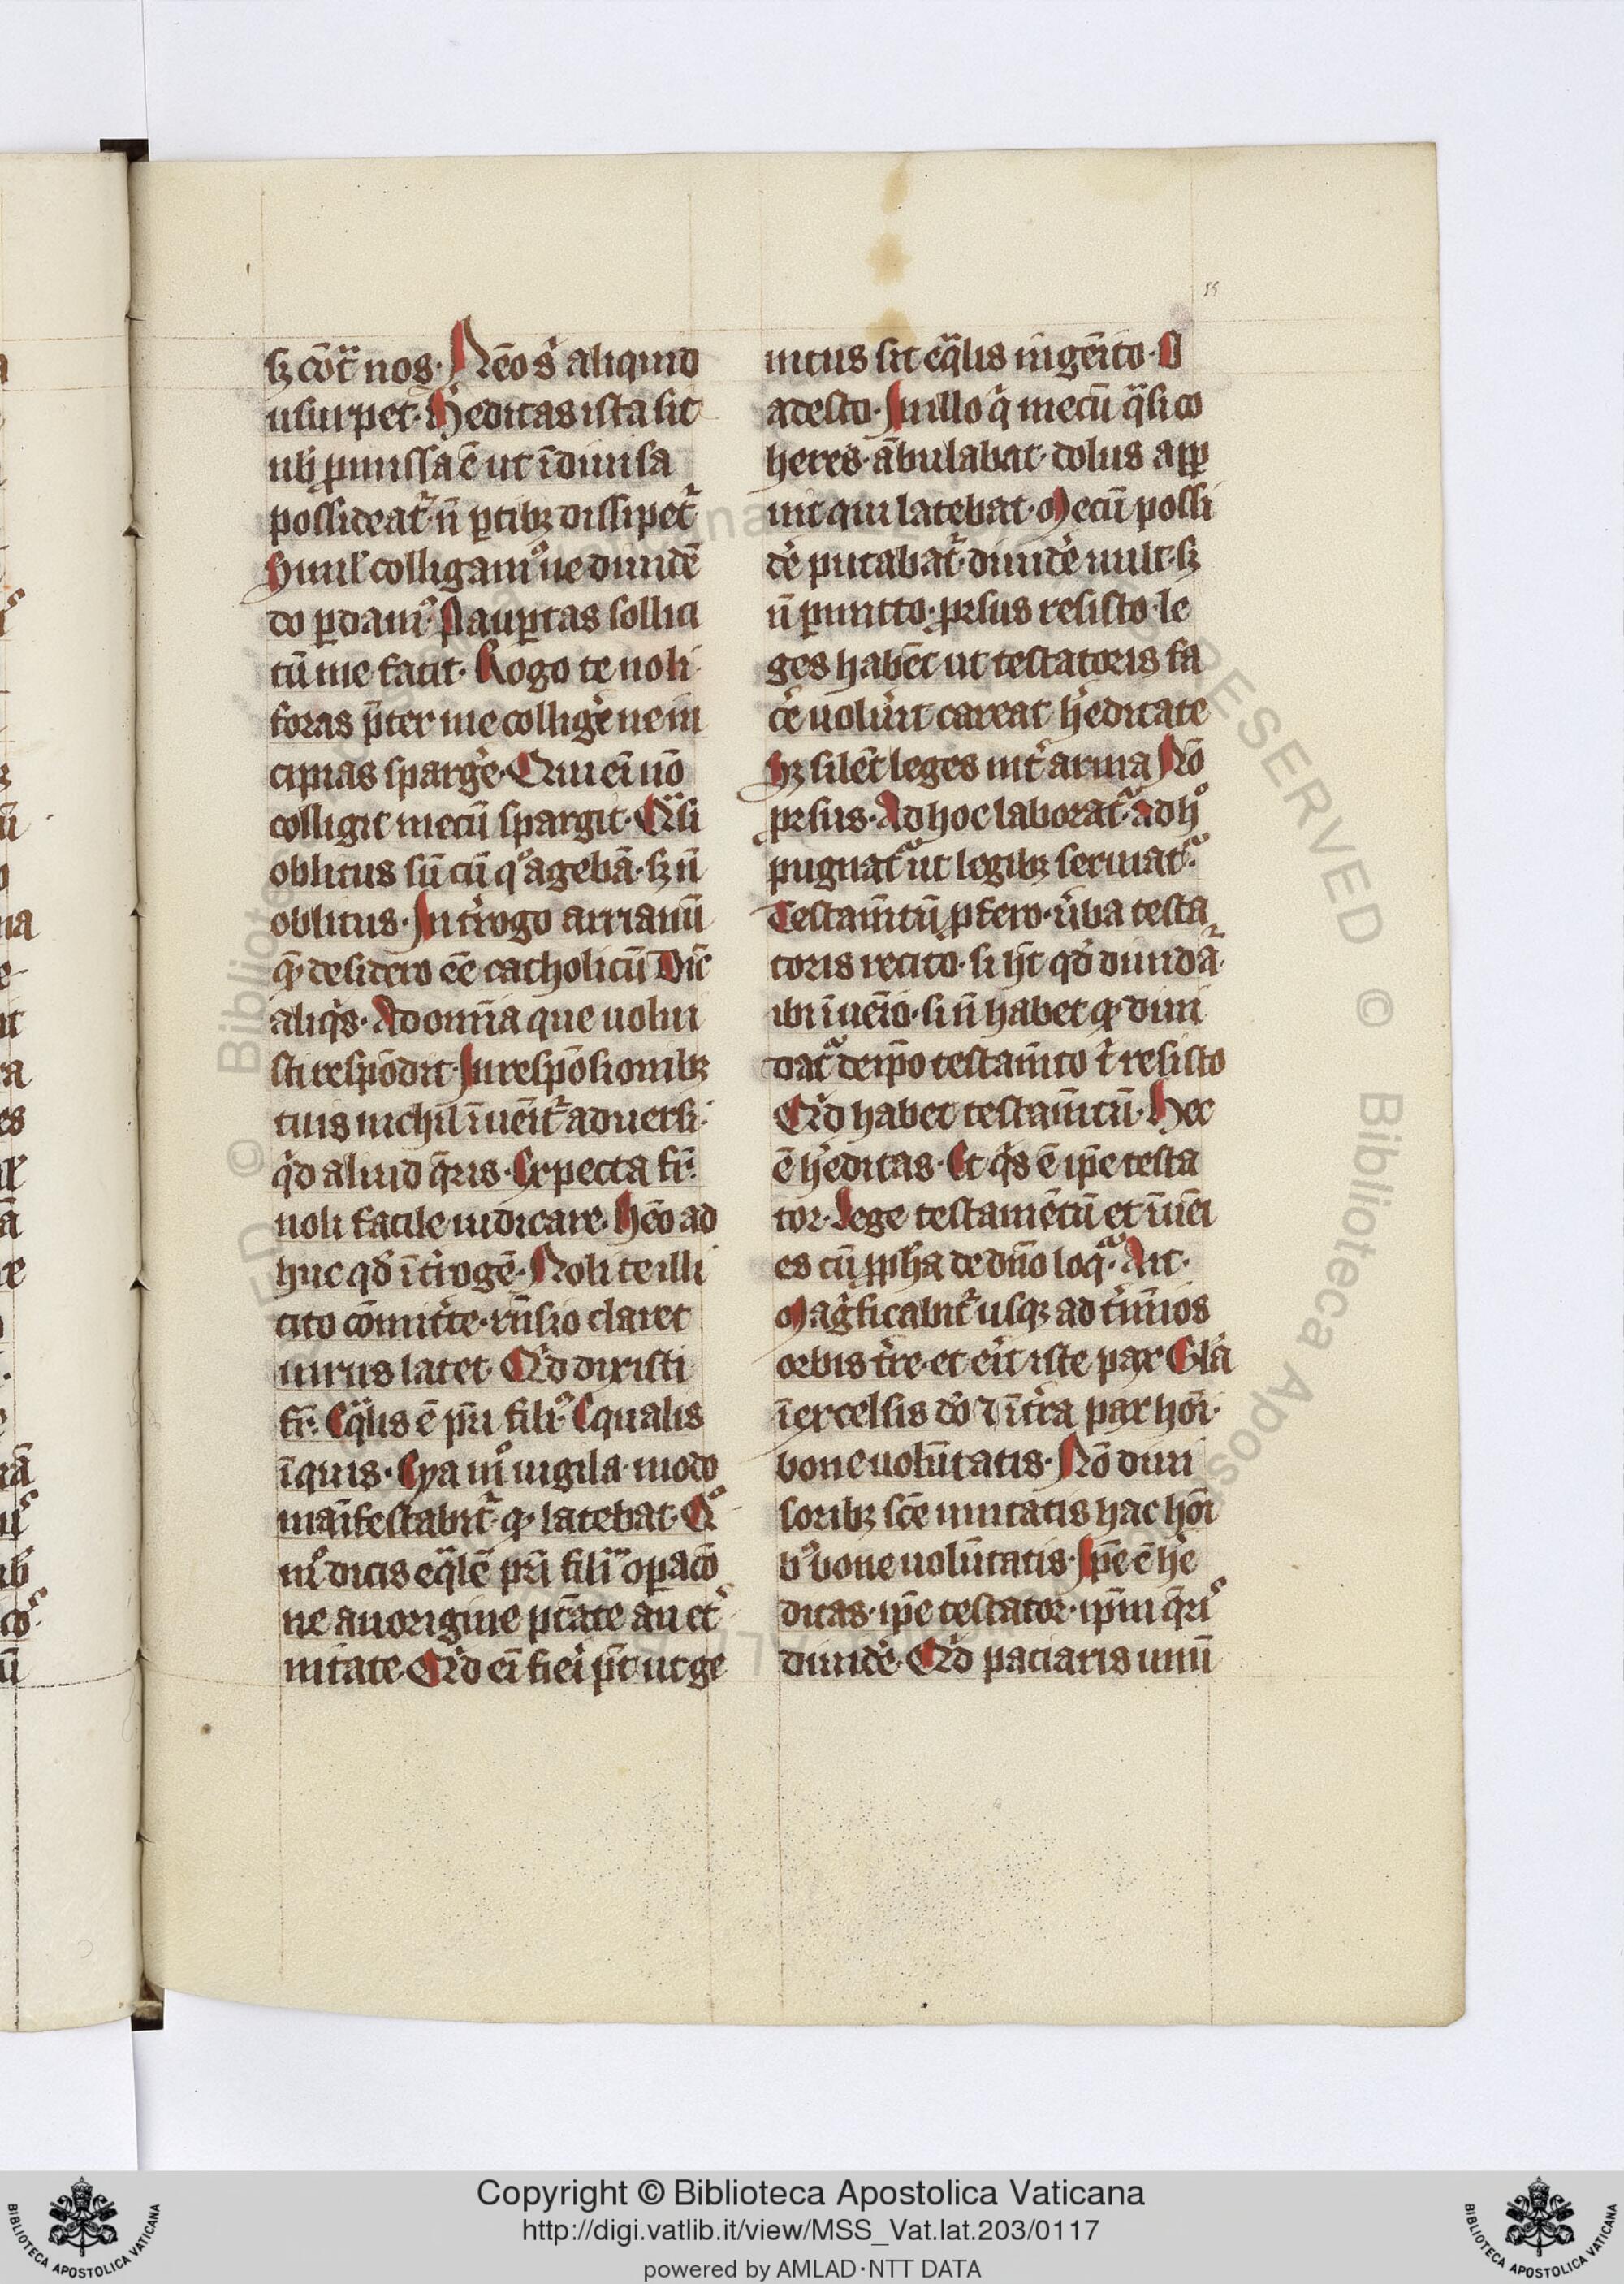 55
sꝫ cōt̾ nos· Nēo s̓ aliquid
usurpet· H̓editas ista sic
nob̄ ꝓmissa ē ut īdiuisa
possideat᷑· n̄ ꝑtibꝫ dissipet᷑
Simul᷑ colligam᷒ ne diuidē
do ꝑdam᷒· Pauꝑtas sollici
tū me facit· Rogo te noli
foras p̄ter me collig̓e ne in
cipias sparg̓e· Qui ei̅ nō
colligit mecū spargit· Qͣsi
oblitus sū cū qͦ agebā· sꝫ n̄
oblitus· Int̓rogo arrianū
q̄ desid̓o ēē catholicū Dic̄
aliqͥs· Ad om̄ia que uolui
sti respōdit· In respōsionibꝫ
tuis nichil īuenit᷑ aduersi·
qͥd aliud q̄ris· Expecta fr̄·
noli facile iudicare· Hēo ad
huc qd̓ īt̓rogē· Noli te illi
cito cōmitt̓e· rn̄sio claret
uirus latet· Qͥd dixisti
fr̄· Eqͣlis ē pr̄i fili᷒· Equalis
īquis· Eya nͦ uigila modo
maīfestabit᷑· q̄ latebat· Qͦ
mͦ dicis eqͣlē pr̄i filiū oꝑacō
ne an origine pt̄ate an et̓
nitate· Qͥd ei̅ fieri pt̄ ut ge
nitus sit eqͣlis ingēito· O
adesto· In illo qͥ mecū qͣsi co
heres· ābulabat· dolus apꝑ
uit qui latebat· Mecū possi
d̓e putabat᷑· diuid̓e uult· sꝫ
n̄ ꝑmitto· ꝓrsus resisto· le
ges habēt ut testatoris fa
c̓e uolu̓it careat h̓editate
Sꝫ silēt leges int̓ arma Nō
ꝓrsus· Ad hoc laborat᷑· ad hͦ
pugnat᷑ ut legibꝫ seruiat᷑·
Testam̄tū ꝓfero· u̓ba testa
toris recito· si ht̄ qd̓ diuidā·
ibi īuēio· si n̄ habet q̄ diui
dat᷑ de ip̄o testam̄to t̓ resisto
Qͥd habet testam̄tū· Hec
ē h̓editas· Et qͥs ē ip̄e testa
tor· Lege testamētū et īuēi
es cū ꝓph̄a de dn̄o loqͣ᷑· Ait·
Magͥficabit᷑ usqꝫ ad t̓minos
orbis t̓re· et erit iste pax Gl̄a
ī excelsis dō ⁊ ī t̓ra pax hōi·
bone uolūtatis· Nō diui
soribꝫ sc̄e unitatis hac hōi
b᷒ bone uolūtatis· Ip̄e ē h̓e
ditas· ip̄e testator· ip̄m q̄ri᷒
diuid̓e· Qͥd paciaris unū
Copyright © Biblioteca Apostolica Vaticana
http://digi.vatlib.it/view/MSS_Vat.lat.203/0117
powered by AMLAD·NTT DATA
BIBLIOTECA APOSTOLICA VATICANA
BIBLIOTECA APOSTOLICA VATICANA